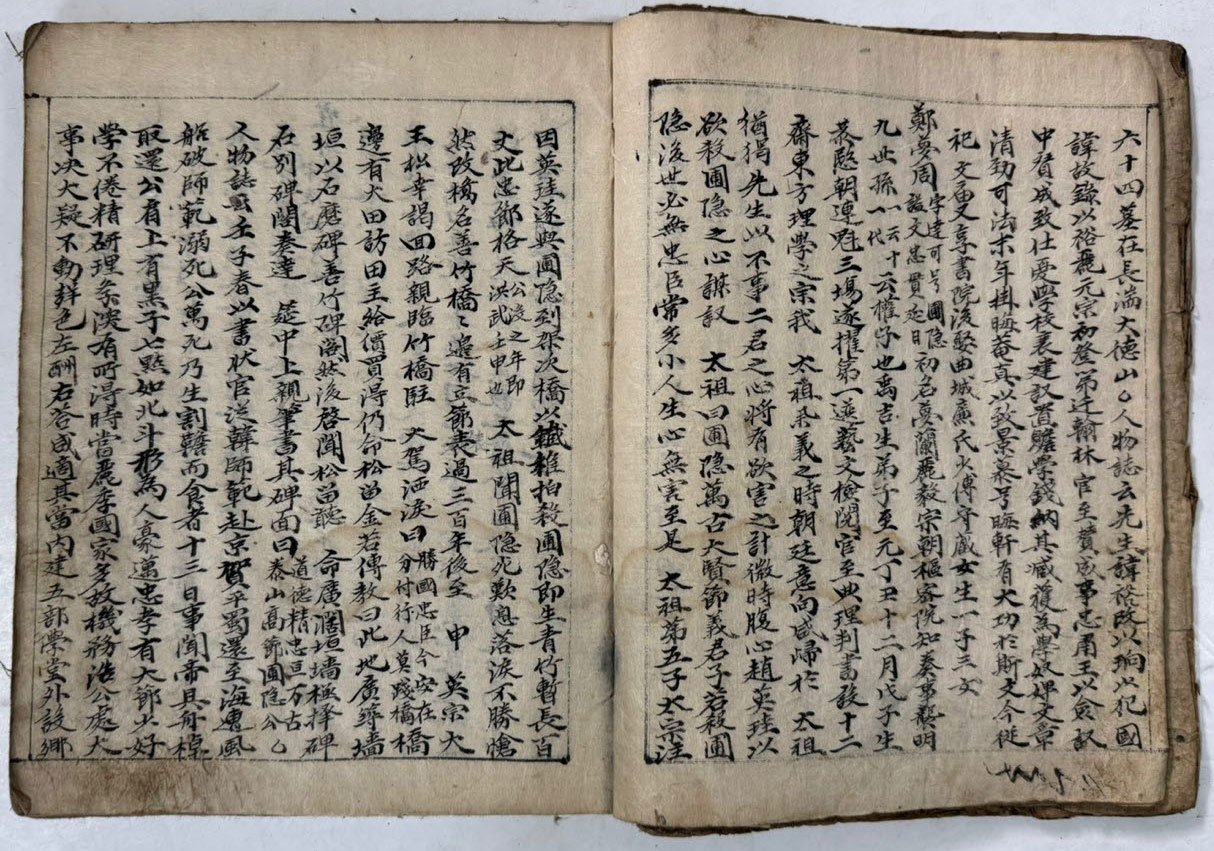 六十四墓在長湍大德山○人物誌云先生諱裕改以珦以犯國
諱故錄以裕麗元宗初登第迁翰林官至賛成事忠肅王以僉議
中賛成致仕憂學校衰建議置贍學錢納其臧獲為學奴婢文章
清勁可法末年掛晦菴真以致景慕号晦軒有大功於斯文今從
祀文庙又享書院後娶曲城廉氏火傅守藏女生一子三女
鄭夢周字達可号圃隐諡文忠貫延日初名夢蘭麗毅宗朝樞密院知奏事襲明
九世孫一云十一代云權守也禹吉生弟子至元丁丑十二月戊子生
恭愍朝連魁三場遂擢第一選藝文檢閱官至典理判書設十二
齋東方理學之宗我 太祖杀義之時朝廷意向咸歸於 太祖
猶獨先生以不事二君之心將有欲害之計微時腹心趙英珪以
欲殺圃隐之心謀議 太祖曰圃隐萬古大賢節義君子若殺圃
隐後世必無忠臣常多小人生心無害至是 太祖第五子太宗注
因英珪遂與圃隐到架次橋以鐵椎拍殺圃隐即生青竹暫長百
丈此忠節格天公没之年即洪武壬申也 太祖聞圃隐死歎息落淚不勝愴
然改橋名善竹橋〻邊有立節表過三百年後至 申 英宗大
王松幸謁回路親臨竹橋駐 大駕洒淚曰勝國忠臣今安在分付行人莫踐橋橋
邊有大田訪田主給價買得仍命松留金若傳教曰此地廣築墻
垣以石磨碑善竹碑阁然後啓聞松留聽 命廣濶垣墻極擇碑
石別碑閣奏達 筵中上親筆書其碑面曰道德精忠亘万古泰山高節圃隐公
人物誌 壬子春以書狀官從韓師範赴京賀平蜀還至海中風
船破師範溺死公萬死乃生割韉而食者十三日事聞帝具舟楫
取還公肩上有黑子七點如北斗形為人豪邁忠孝有大節少好
學不倦精研理条淡有所得時當麗季國家多故機務浩公處大
事决大疑不動聲色左酬右答咸適其當内建五部學堂外設鄉